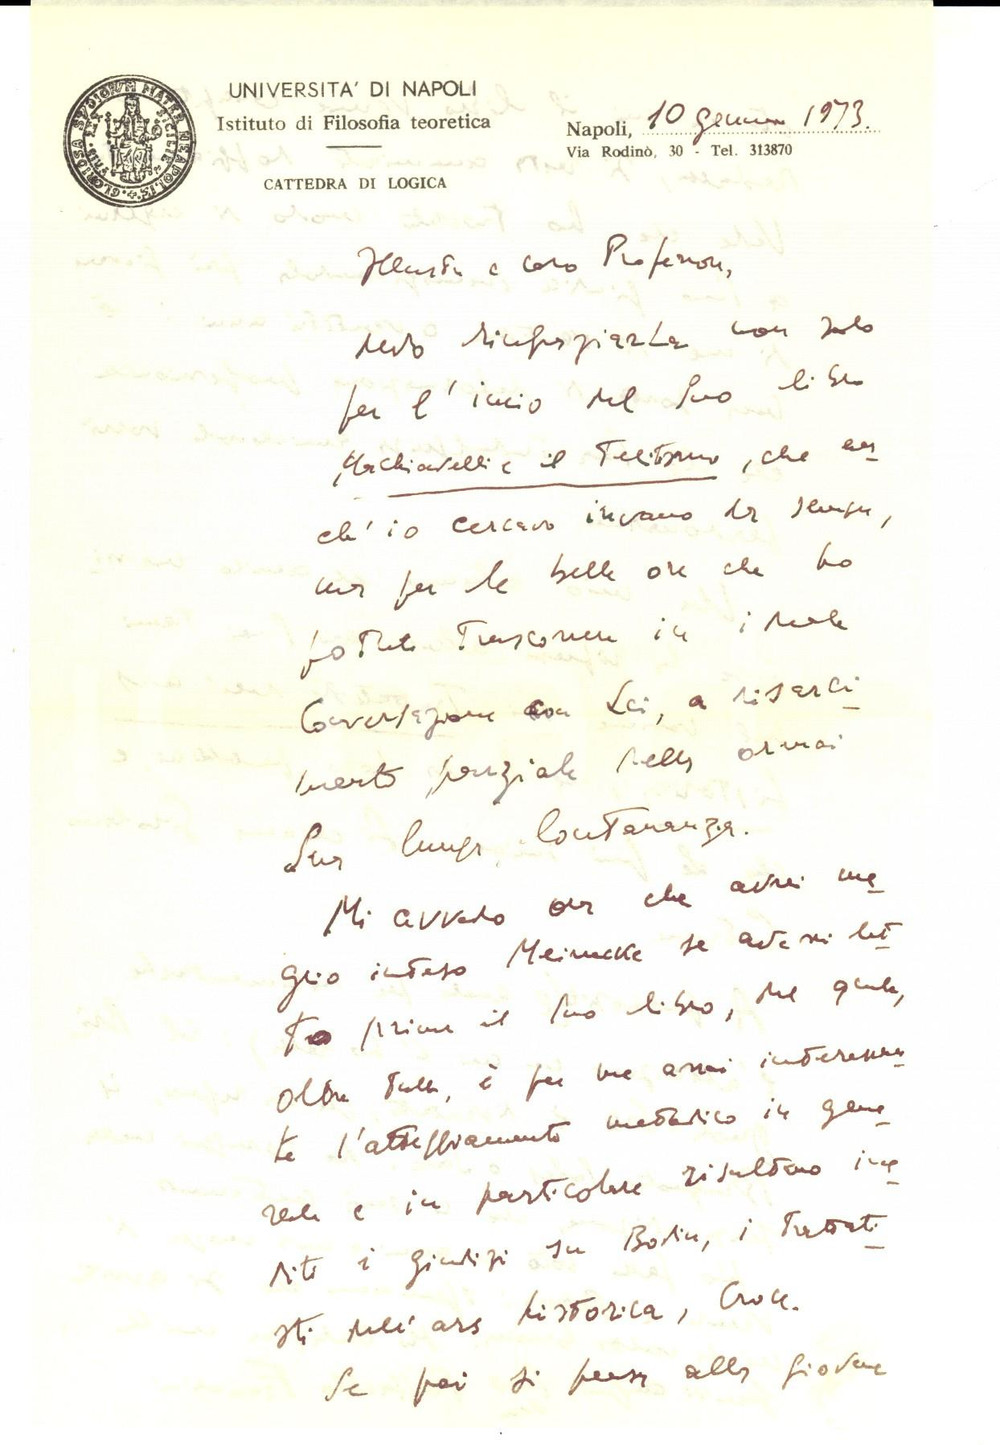 UNIVERSITA' DI NAPOLI
Istituto di Filosofia teoretica
CATTEDRA DI LOGICA
Napoli, 10 gennaio 1973.
Via Rodinò, 30 - Tel. 313870
Illustre e caro Professore,
devo ringraziarLa non solo
per l'invio del Suo libro
Machiavelli e il Tacitismo, che an-
ch'io cercavo invano da sempre,
ma per le belle ore che ho
potuto trascorrere in ideale
conversazione con Lei, a risarci-
mento parziale della ormai
Sua lunga lontananza.
Mi avvedo ora che avrei me-
glio inteso Meinecke se avessi let-
to prima il Suo libro, del quale,
oltre tutto, è per me assai interessan-
te l'atteggiamento metodico in gene-
rale e in particolare risultano ine-
diti i giudizi su Bodin, i trattati-
sti dell'ars historica, Croce.
Se poi si pensa alla giovane